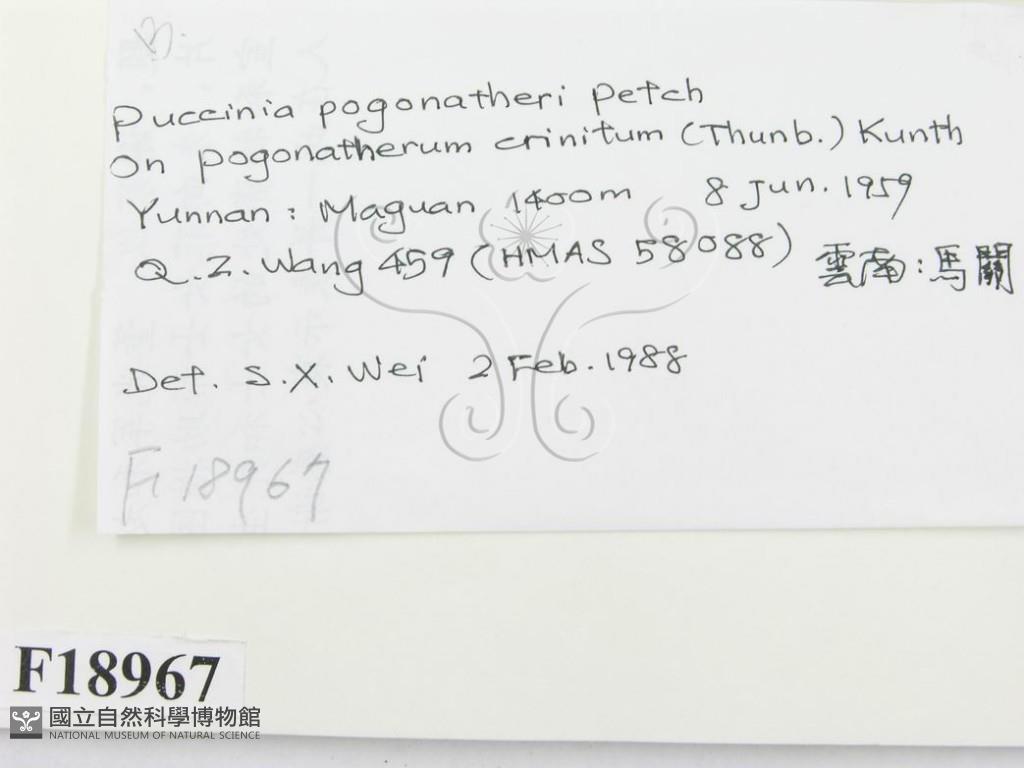 B.
Puccinia pogonatheri petch
On pogonatherum crinitum (Thunb.) Kunth
Yunnan : Maguan 1400m 8 Jun. 1959
Q.Z. Wang 459 (HMAS 58088) 雲南:馬關
Det. S.X. Wei 2 Feb. 1988
F18967
F18967
國立自然科學博物館
NATIONAL MUSEUM OF NATURAL SCIENCE